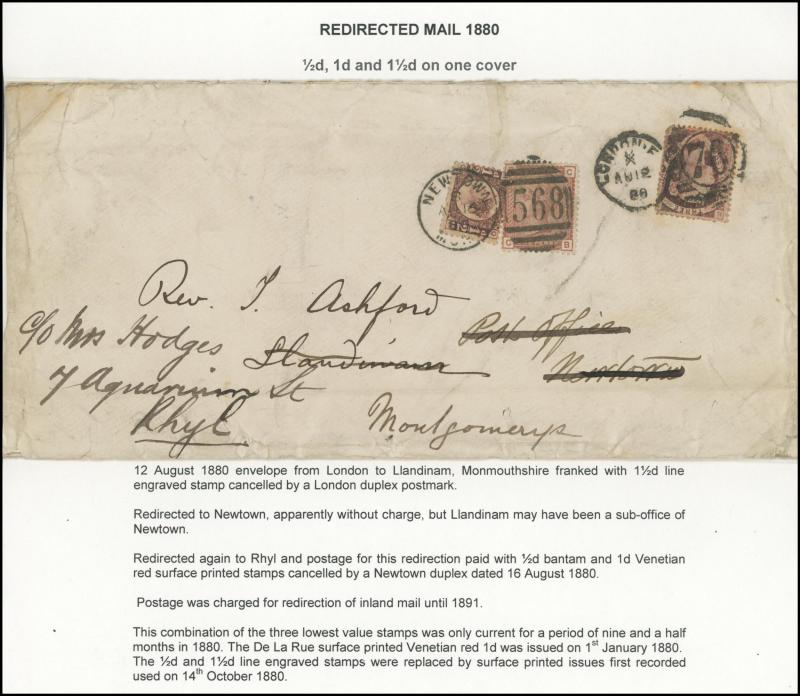 REDIRECTED MAIL 1880
½d, 1d and 1½d on one cover
LONDON·E
X
AU12
80
NEWTOWN
568
Rev. T. Ashford
c/o Mrs Hodges
Post Office
Llandinam
Newtown
7 Aquarium St
Rhyl
Montgomerys
12 August 1880 envelope from London to Llandinam, Monmouthshire franked with 1½d line
engraved stamp cancelled by a London duplex postmark.
Redirected to Newtown, apparently without charge, but Llandinam may have been a sub-office of
Newtown.
Redirected again to Rhyl and postage for this redirection paid with ½d bantam and 1d Venetian
red surface printed stamps cancelled by a Newtown duplex dated 16 August 1880.
Postage was charged for redirection of inland mail until 1891.
This combination of the three lowest value stamps was only current for a period of nine and a half
months in 1880. The De La Rue surface printed Venetian red 1d was issued on 1st January 1880.
The ½d and 1½d line engraved stamps were replaced by surface printed issues first recorded
used on 14th October 1880.